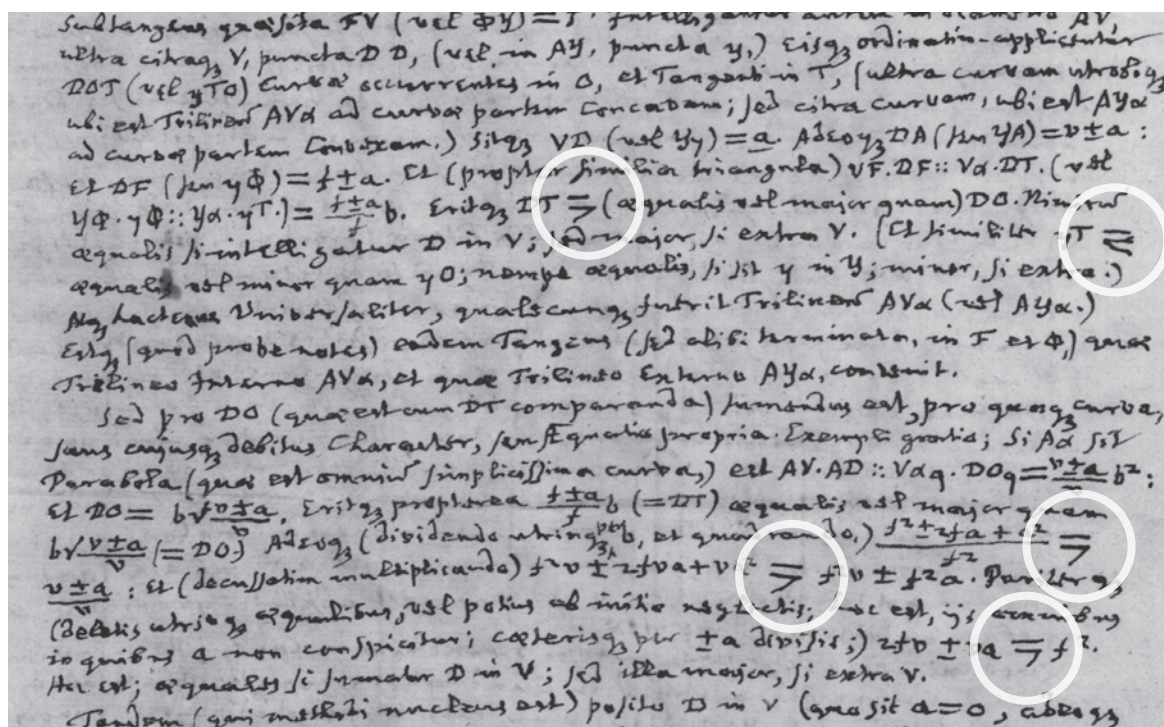 Subtangens quæsita FV (vel ΦY) = f. Intelligantur autem in AV,
ultra citraqꝫ V, puncta D D, (vel, in AY, puncta y,) Eisqꝫ ordinatim-applicentur
DOT (vel yTO) Curvæ occurrentes in O, et Tangenti in T, (ultra curvam utrobiqꝫ
ubi est Trilineū AVα ad curvæ partem Concavam; sed citra curvam, ubi est AYα
ad curvæ partem Convexam.) Sitqꝫ VD (vel Yy) = a. Adeoqꝫ DA (seu yA) = v ± a :
Et DF (seu yΦ) = f ± a. Et (propter similia triangula) VF. DF :: Vα. DT. (vel
YΦ. yΦ :: Yα. yT.) = (f ± a)/f b. Eritqꝫ DT ⋝ (æqualis vel major quam) DO. Nimirū
æqualis si intelligatur D in V; sed major, si extra V. (Et similiter yT ⋜
æqualis vel minor quam yO; nempe æqualis, si sit y in Y; minor, si extra.)
Atqꝫ hactenus Universaliter, qualecunqꝫ fuerit Trilineū AVα (vel AYα.)
Estqꝫ (quod probe notes) eadem Tangens (sed alibi terminata, in F et Φ,) quæ
Trilineo Interno AVα, et quæ Trilineo Externo AYα, convenit.
Sed pro DO (quæ est cum DT comparanda) sumendus est, pro quaqꝫ curva,
suus cujusqꝫ debitus Character, seu Æquatio propria. Exempli gratia; Si Aα sit
Parabola (quæ est omniū simplicissima curva,) est AV. AD :: Vαq. DOq = (v ± a)/v b² :
Et DO = b√(v ± a)/v. Eritqꝫ propterea (f ± a)/f b (= DT) æqualis vel major quam
b√(v ± a)/v (= DO.) Adeoqꝫ (dividendo utrinqꝫ per b, et quadrando,) (f² ± 2fa + a²)/f² ⋝
(v ± a)/v : Et (decussatim multiplicando) f²v ± 2fva + va² ⋝ f²v ± f²a. Pariterqꝫ
(deletis utrinqꝫ æqualibus, vel potius ab initio neglectis; hoc est, ijs omnibus
in quibus a non conspicitur; cæterisqꝫ per ± a divisis;) 2fv ± va ⋝ f².
Hoc est; æquales si sumatur D in V; sed illa major, si extra V.
Tandem (qui methodi nucleus est) posito D in V (quo sit a = 0, adeoqꝫ